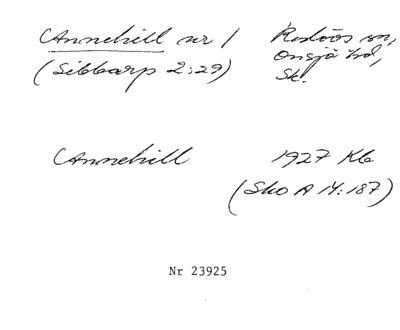 Annehill nr 1
(Sibbarp 2:29)
sn,
Onsjö hd,
Sk.
Annehill 1927 Kb
(Sko A 14:187)
Nr 23925